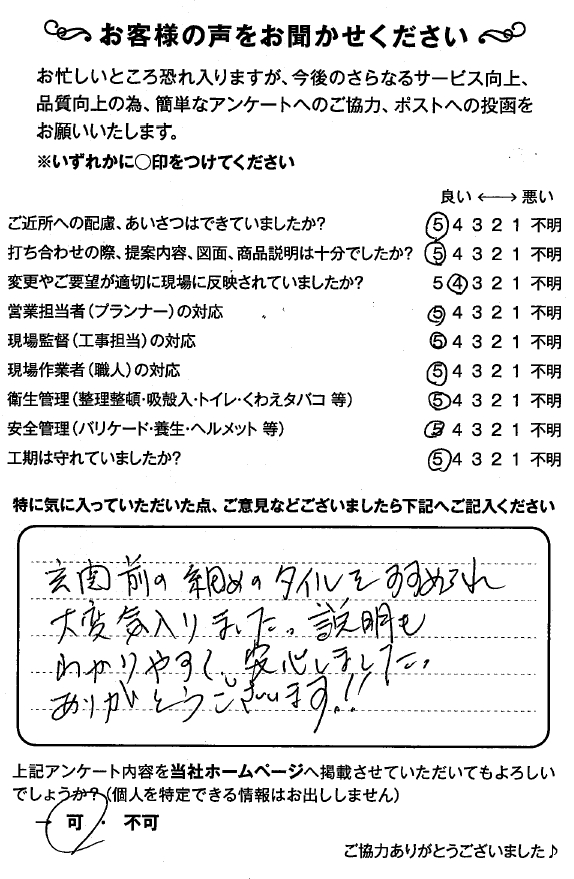 お客様の声をお聞かせください
お忙しいところ恐れ入りますが、今後のさらなるサービス向上、
品質向上の為、簡単なアンケートへのご協力、ポストへの投函を
お願いいたします。
※いずれかに○印をつけてください
良い ←→ 悪い
ご近所への配慮、あいさつはできていましたか? 5 4 3 2 1 不明
打ち合わせの際、提案内容、図面、商品説明は十分でしたか? 5 4 3 2 1 不明
変更やご要望が適切に現場に反映されていましたか? 5 4 3 2 1 不明
営業担当者(プランナー)の対応 5 4 3 2 1 不明
現場監督(工事担当)の対応 5 4 3 2 1 不明
現場作業者(職人)の対応 5 4 3 2 1 不明
衛生管理(整理整頓・吸殻入・トイレ・くわえタバコ 等) 5 4 3 2 1 不明
安全管理(バリケード・養生・ヘルメット 等) 5 4 3 2 1 不明
工期は守れていましたか? 5 4 3 2 1 不明
特に気に入っていただいた点、ご意見などございましたら下記へご記入ください
玄関前の細めのタイルをすすめられ
大変気入りました。説明も
わかりやすく、安心しました。
ありがとうございます!!
上記アンケート内容を当社ホームページへ掲載させていただいてもよろしい
でしょうか?(個人を特定できる情報はお出ししません)
可 ・ 不可
ご協力ありがとうございました♪